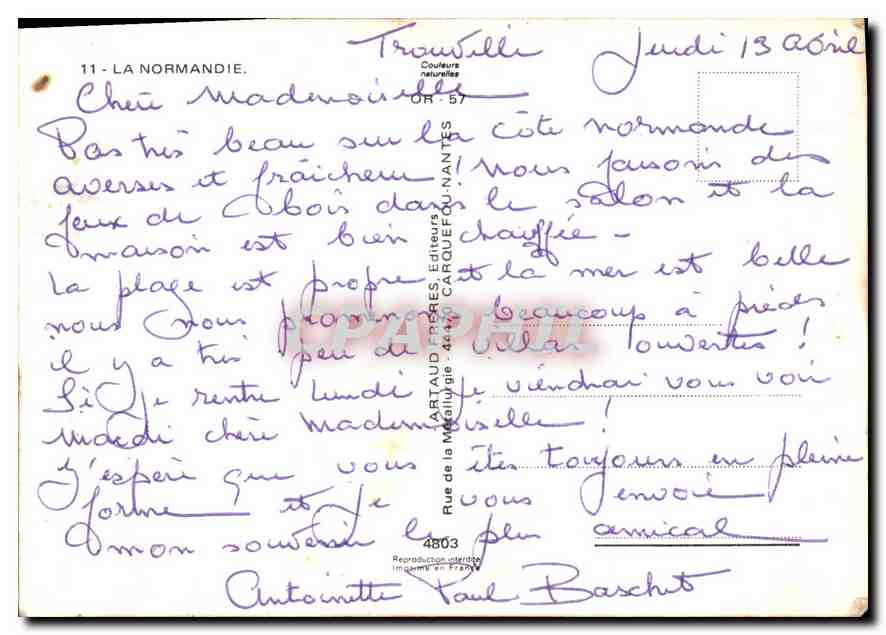 Trouville Jeudi 13 Avril
11 - LA NORMANDIE.
Couleurs
naturelles
OR - 57
Chère Mademoiselle
Pas très beau sur la côte normande
averses et fraîcheur ! Nous faisons des
jeux de bois dans le salon et la
maison est bien chauffée -
La plage est propre et la mer est belle
nous nous promenons beaucoup à pieds
il y a très peu de villas ouvertes !
Si je rentre Lundi je viendrai vous voir
Mardi chère Mademoiselle !
J'espère que vous êtes toujours en pleine
forme et je vous envoie
mon souvenir le plus amical
Antoinette Paul Baschet
ARTAUD FRERES, Editeurs
Rue de la Métallurgie - 44470 CARQUEFOU-NANTES
4803
Reproduction interdite
Imprimé en France
CPAPHIL